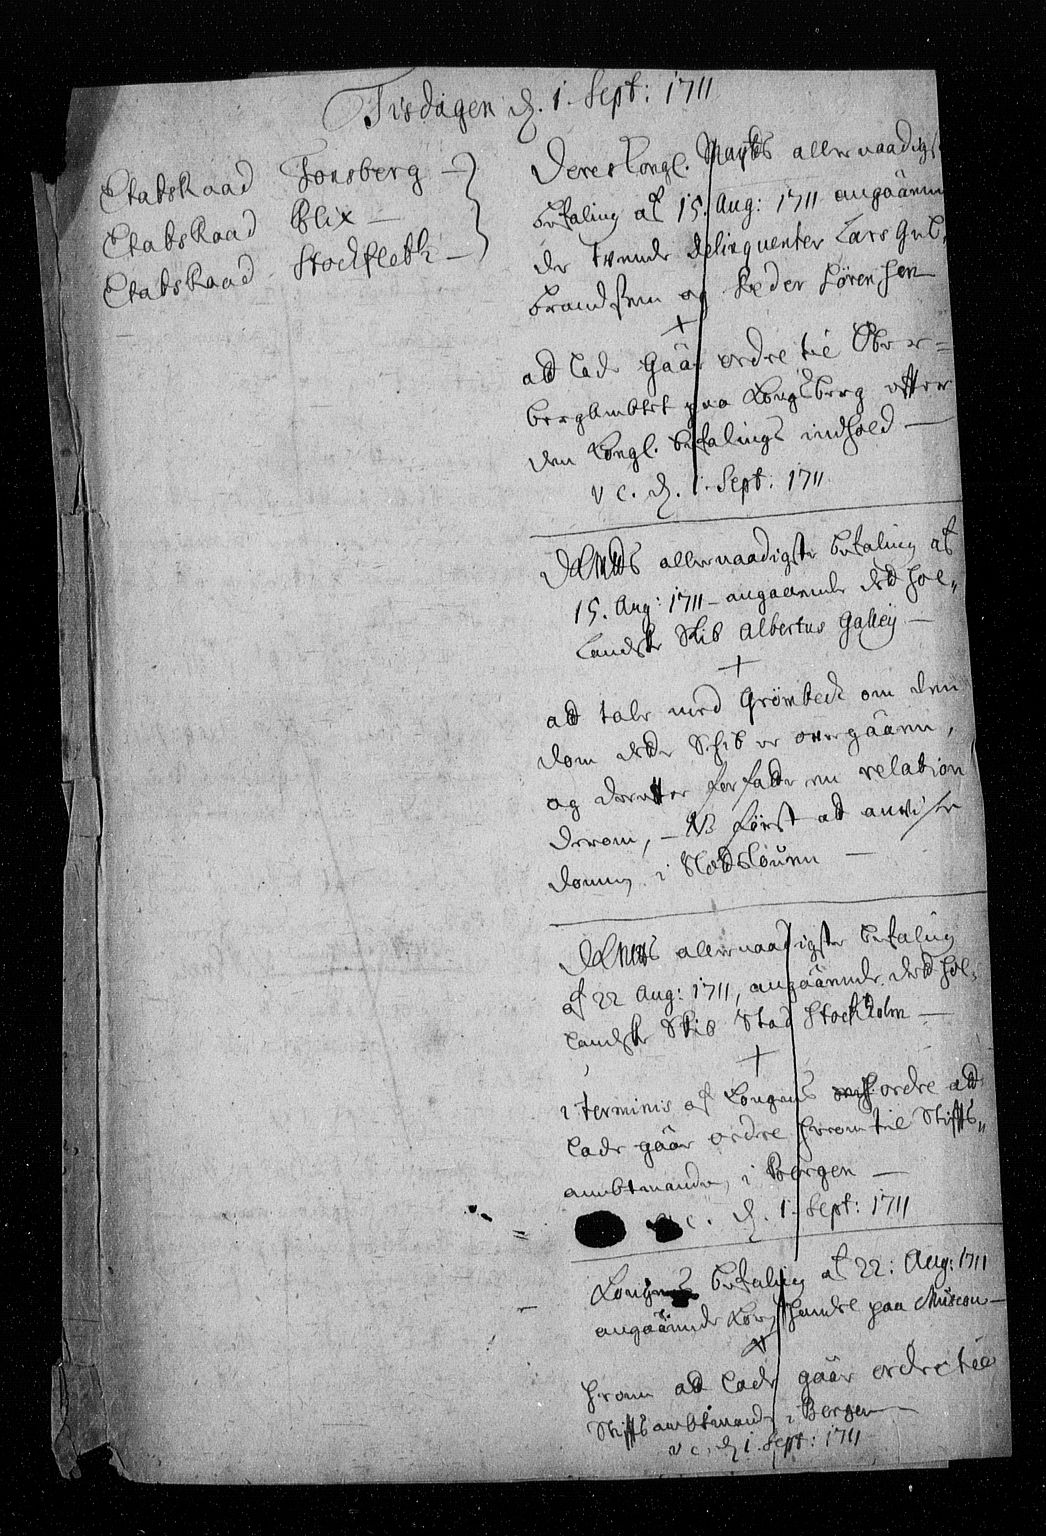 Tisdagen d. 1. Sept: 1711
Etatsraad Tonsberg —
Etatsraad Blix —
Etatsraad Stockfleth —
Deres Kongl. Mayts allernaadigst
befaling af 15. Aug: 1711 angaaænde
de tvende Delinquenter Lars Gul-
brandssen og Peder Sørensen
+
att lade gaar ordre til Ober=
bergAmbtet paa Kongsberg efter
den Kongl. befalings indhold —
v c. d. 1. Sept: 1711
DKMtts allernaadigste befaling af
15. Aug: 1711 — angaaende det hol„
landske Skib Albertus Galley —
+
at tale med Grønbeck om den
dom dette Schib er overgaaen,
og derefter forfatte en relation
derom, — NB først at anvise
dommen i Slotsloven —
DKMtts allernaadigste befaling
af 22 Aug: 1711, angaaende det hol„
landske Skib Stad Stockholm —
+
i terminis af Kongens ordre att
lade gaar ordre herom til Stifts„
ambtmanden i Bergen —
c. d. 1. Sept: 1711
Kongens befaling af 22: Aug: 1711
angaaende Kornhandel paa
+
herom att lade gaar ordre til
Stiftsambtmanden i Bergen —
v c. d 1. Sept: 1711